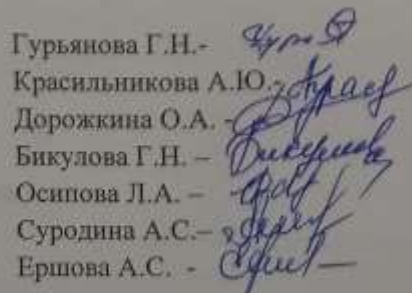 Гурьянова Г.Н.-
Красильникова А.Ю.-
Дорожкина О.А. -
Бикулова Г.Н. –
Осипова Л.А. –
Суродина А.С.–
Ершова А.С. -